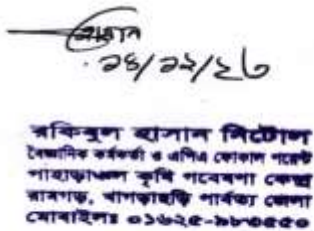 ১৪/১২/২৩
রকিবুল হাসান নিটোল
বৈজ্ঞানিক কর্মকর্তা ও এপিএ ফোকাল পয়েন্ট
পাহাড়াঞ্চল কৃষি গবেষণা কেন্দ্র
রামগড়, খাগড়াছড়ি পার্বত্য জেলা
মোবাইলঃ